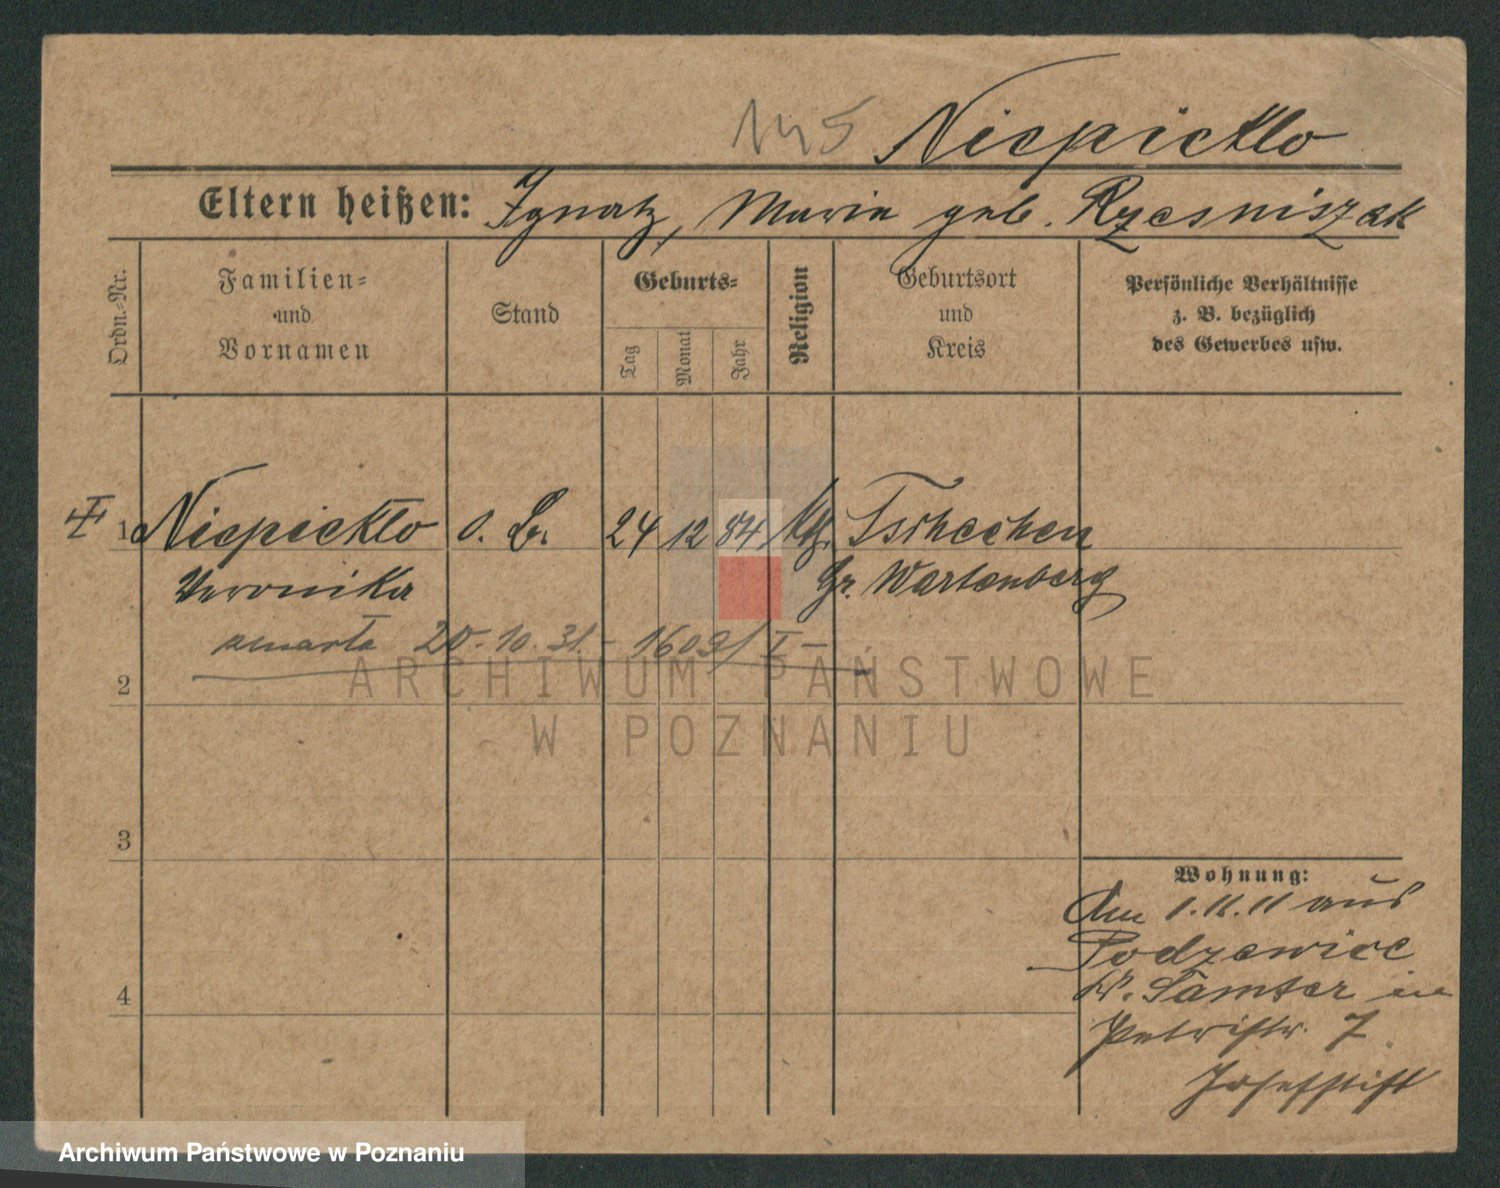 145 Niepiekło
Eltern heißen: Ignatz, Maria geb. Rzesniszak
Ordn.-Nr.
Familien-
und
Vornamen
Stand
Geburts-
Tag
Monat
Jahr
Religion
Geburtsort
und
Kreis
Persönliche Verhältnisse
z. B. bezüglich
des Gewerbes usw.
1 Niepiekło o. B. 24 12 84 kth. Tschechen
Veronika Gr. Wartenberg
zmarła 20.10.31. - 1609/I -
2
ARCHIWUM PAŃSTWOWE
W POZNANIU
3
4
Wohnung:
Am 1.11.11 aus
Podzewice
Kr. Samter in
Petristr. 7
Josefstift
Archiwum Państwowe w Poznaniu